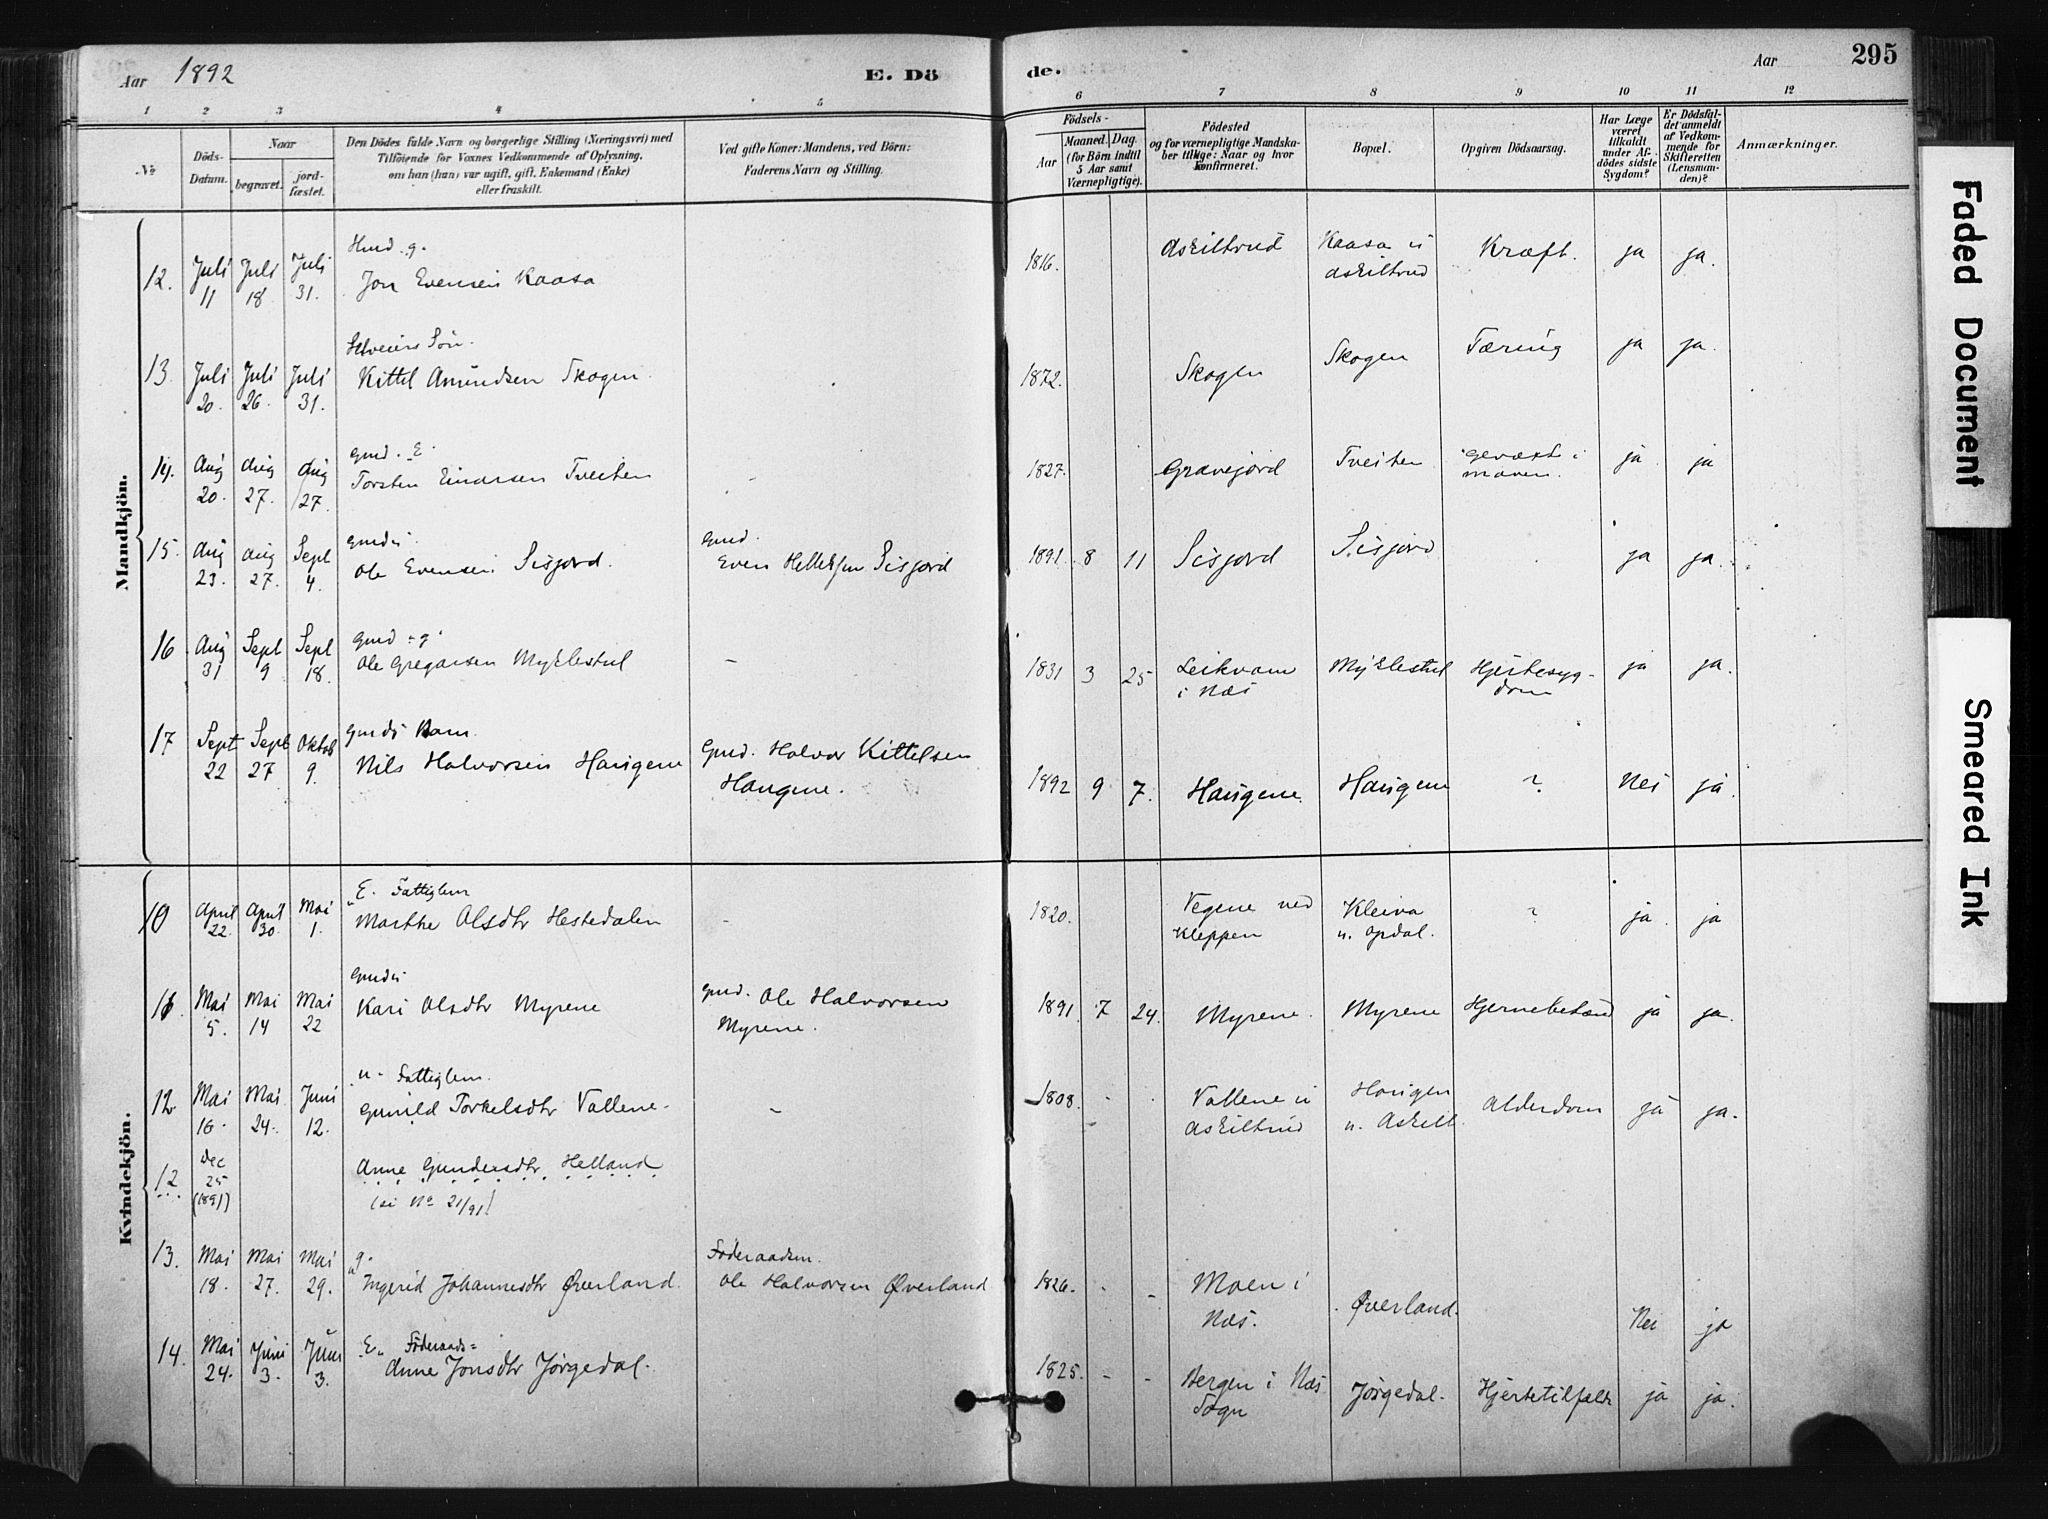 Aar 1892 E. Döde. Aar 295
1 2 3 4 5 6 7 8 9 10 11 12
No
Döds-
Datum.
Naar
begravet.
jord-
fæstet.
Den Dödes fulde Navn og borgerlige Stilling (Næringsvei) med
Tilföiende for Voxnes Vedkommende af Oplysning,
om han (hun) var ugift, gift, Enkemand (Enke)
eller fraskilt.
Ved gifte Koner: Mandens, ved Börn:
Faderens Navn og Stilling.
Födsels-
Aar
Maaned.
Dag.
(for Börn indtil
5 Aar samt
Værnepligtige).
Födested
og for værnepligtige Mandska-
ber tillige: Naar og hvor
Konfirmeret.
Bopæl.
Opgiven Dödsaarsag.
Har Læge
været
tilkaldt
under Af-
dödes sidste
Sygdom?
Er Dödsfal-
det anmeldt
af Vedkom-
mende for
Skifteretten
(Lensman-
den)?
Anmærkninger.
Mandkjön.
12. Juli 11 Juli 18 Juli 31. Husmd. g.
Jon Evensen Kaasa 1816. Askiltrud Kaasa u
Askiltrud Kræft. ja ja.
13. Juli 20. Juli 26. Juli 31. Selveiers Søn.
Kittel Amundsen Skogen. 1872. Skogen Skogen Tæring ja ja.
14. Aug 20. Aug 27. Aug 27. Gmd. E.
Torsten Einarsen Tveiten - 1827. Gravejord Tveiten Gevæxt i
maven. ja. ja
15. Aug 23. Aug 27. Sept 4. Gmds
Ole Evensen Sisjord. Gmd.
Even Helleksen Sisjord 1891. 8 11 Sisjord Sisjord ja ja.
16 Aug 31 Sept 9 Sept 18. Gmd - g.
Ole Gregarsen Myklestul - 1831 3 25 Leikvam
i Næs Myklestul Hjertesyg-
dom ja ja.
17 Sept 22 Sept 27 Oktob 9. Gmds Barn.
Nils Halvorsen Haugene Gmd. Halvor Kittelsen
Haugene. 1892 9 7. Haugene. Haugene ? Nei ja.
Kvindekjön.
10 April 22. April 30. Mai 1. E. Fattiglem
Marthe Olsdtr Hestedalen - 1820. Vegene ved
Kleppen Kleiva
u. Opdal. ? ja. ja
11. Mai 5. Mai 14 Mai 22 Gmds
Kari Olsdtr Myrene Gmd. Ole Halvorsen
Myrene. 1891. 7 24. Myrene. Myrene Hjernebetænd ja ja.
12. Mai 16. Mai 24. Juni 12. u- Fattiglem.
Gunild Torkelsdtr Vallene. - 1808. - - Vallene u
Askiltrud Haugen
u. Askilt. Alderdom ja ja.
12 Dec 25 (1891) Anne Gundersdtr Helland
(se No 21/91)
13. Mai 18. Mai 27. Mai 29. g.
Ingerid Johannesdtr Øverland. Föderaadsm.
Ole Halvorsen Øverland 1826. - - Moen i
Næs. Øverland. Nei ja
14. Mai 24. Juni 3. Juni 3. E. Föderaads=
Anne Jonsdtr Jørgedal. 1825. - - Bergen i Næs
Sogn Jørgedal. Hjertetilfælde ja ja.
Faded Document
Smeared Ink